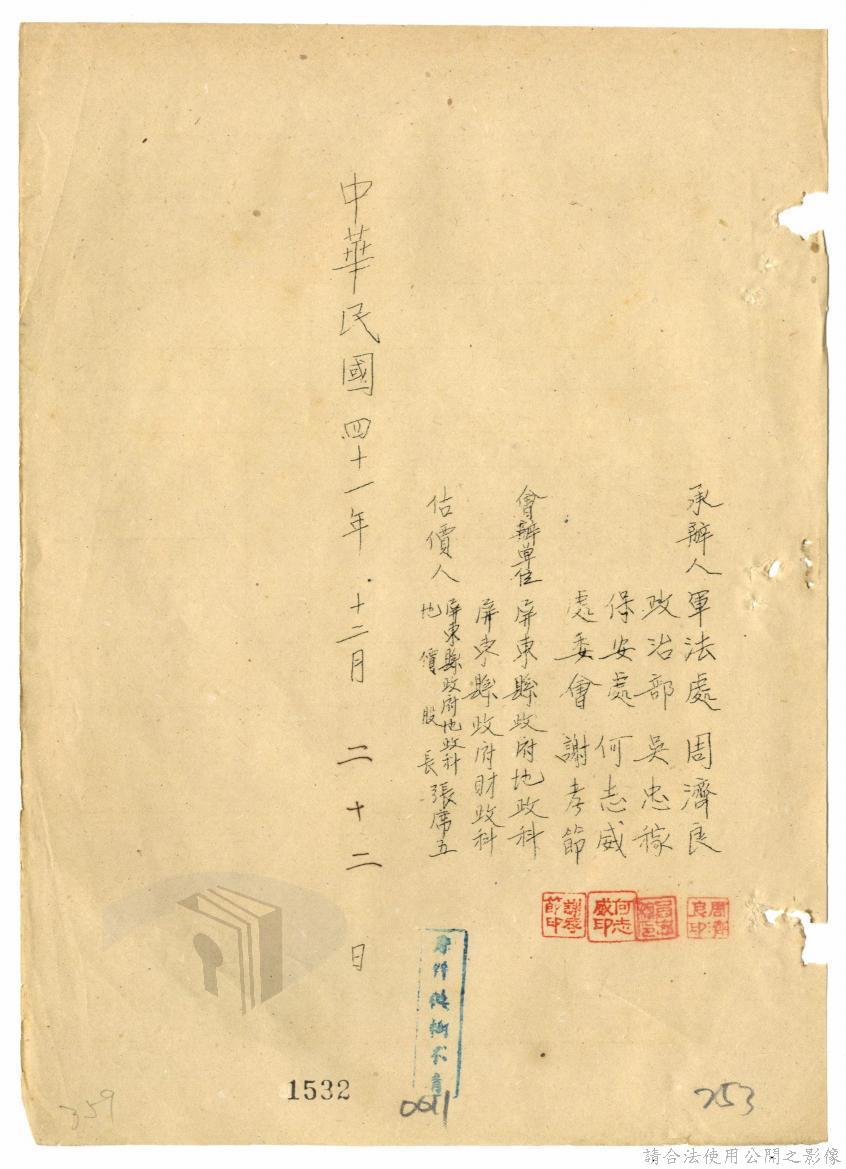 承辦人 軍法處 周濟良
政治部 吳忠稼
保安處 何志威
處委會 謝孝節
會辦單位 屏東縣政府地政科
屏東縣政府財政科
估價人 屏東縣政府地政科
地價股長 張席五
中華民國四十一年十二月二十二日
何志
威印
謝孝
節印
周濟
良印
1532
0011
253
359
請合法使用公開之影像